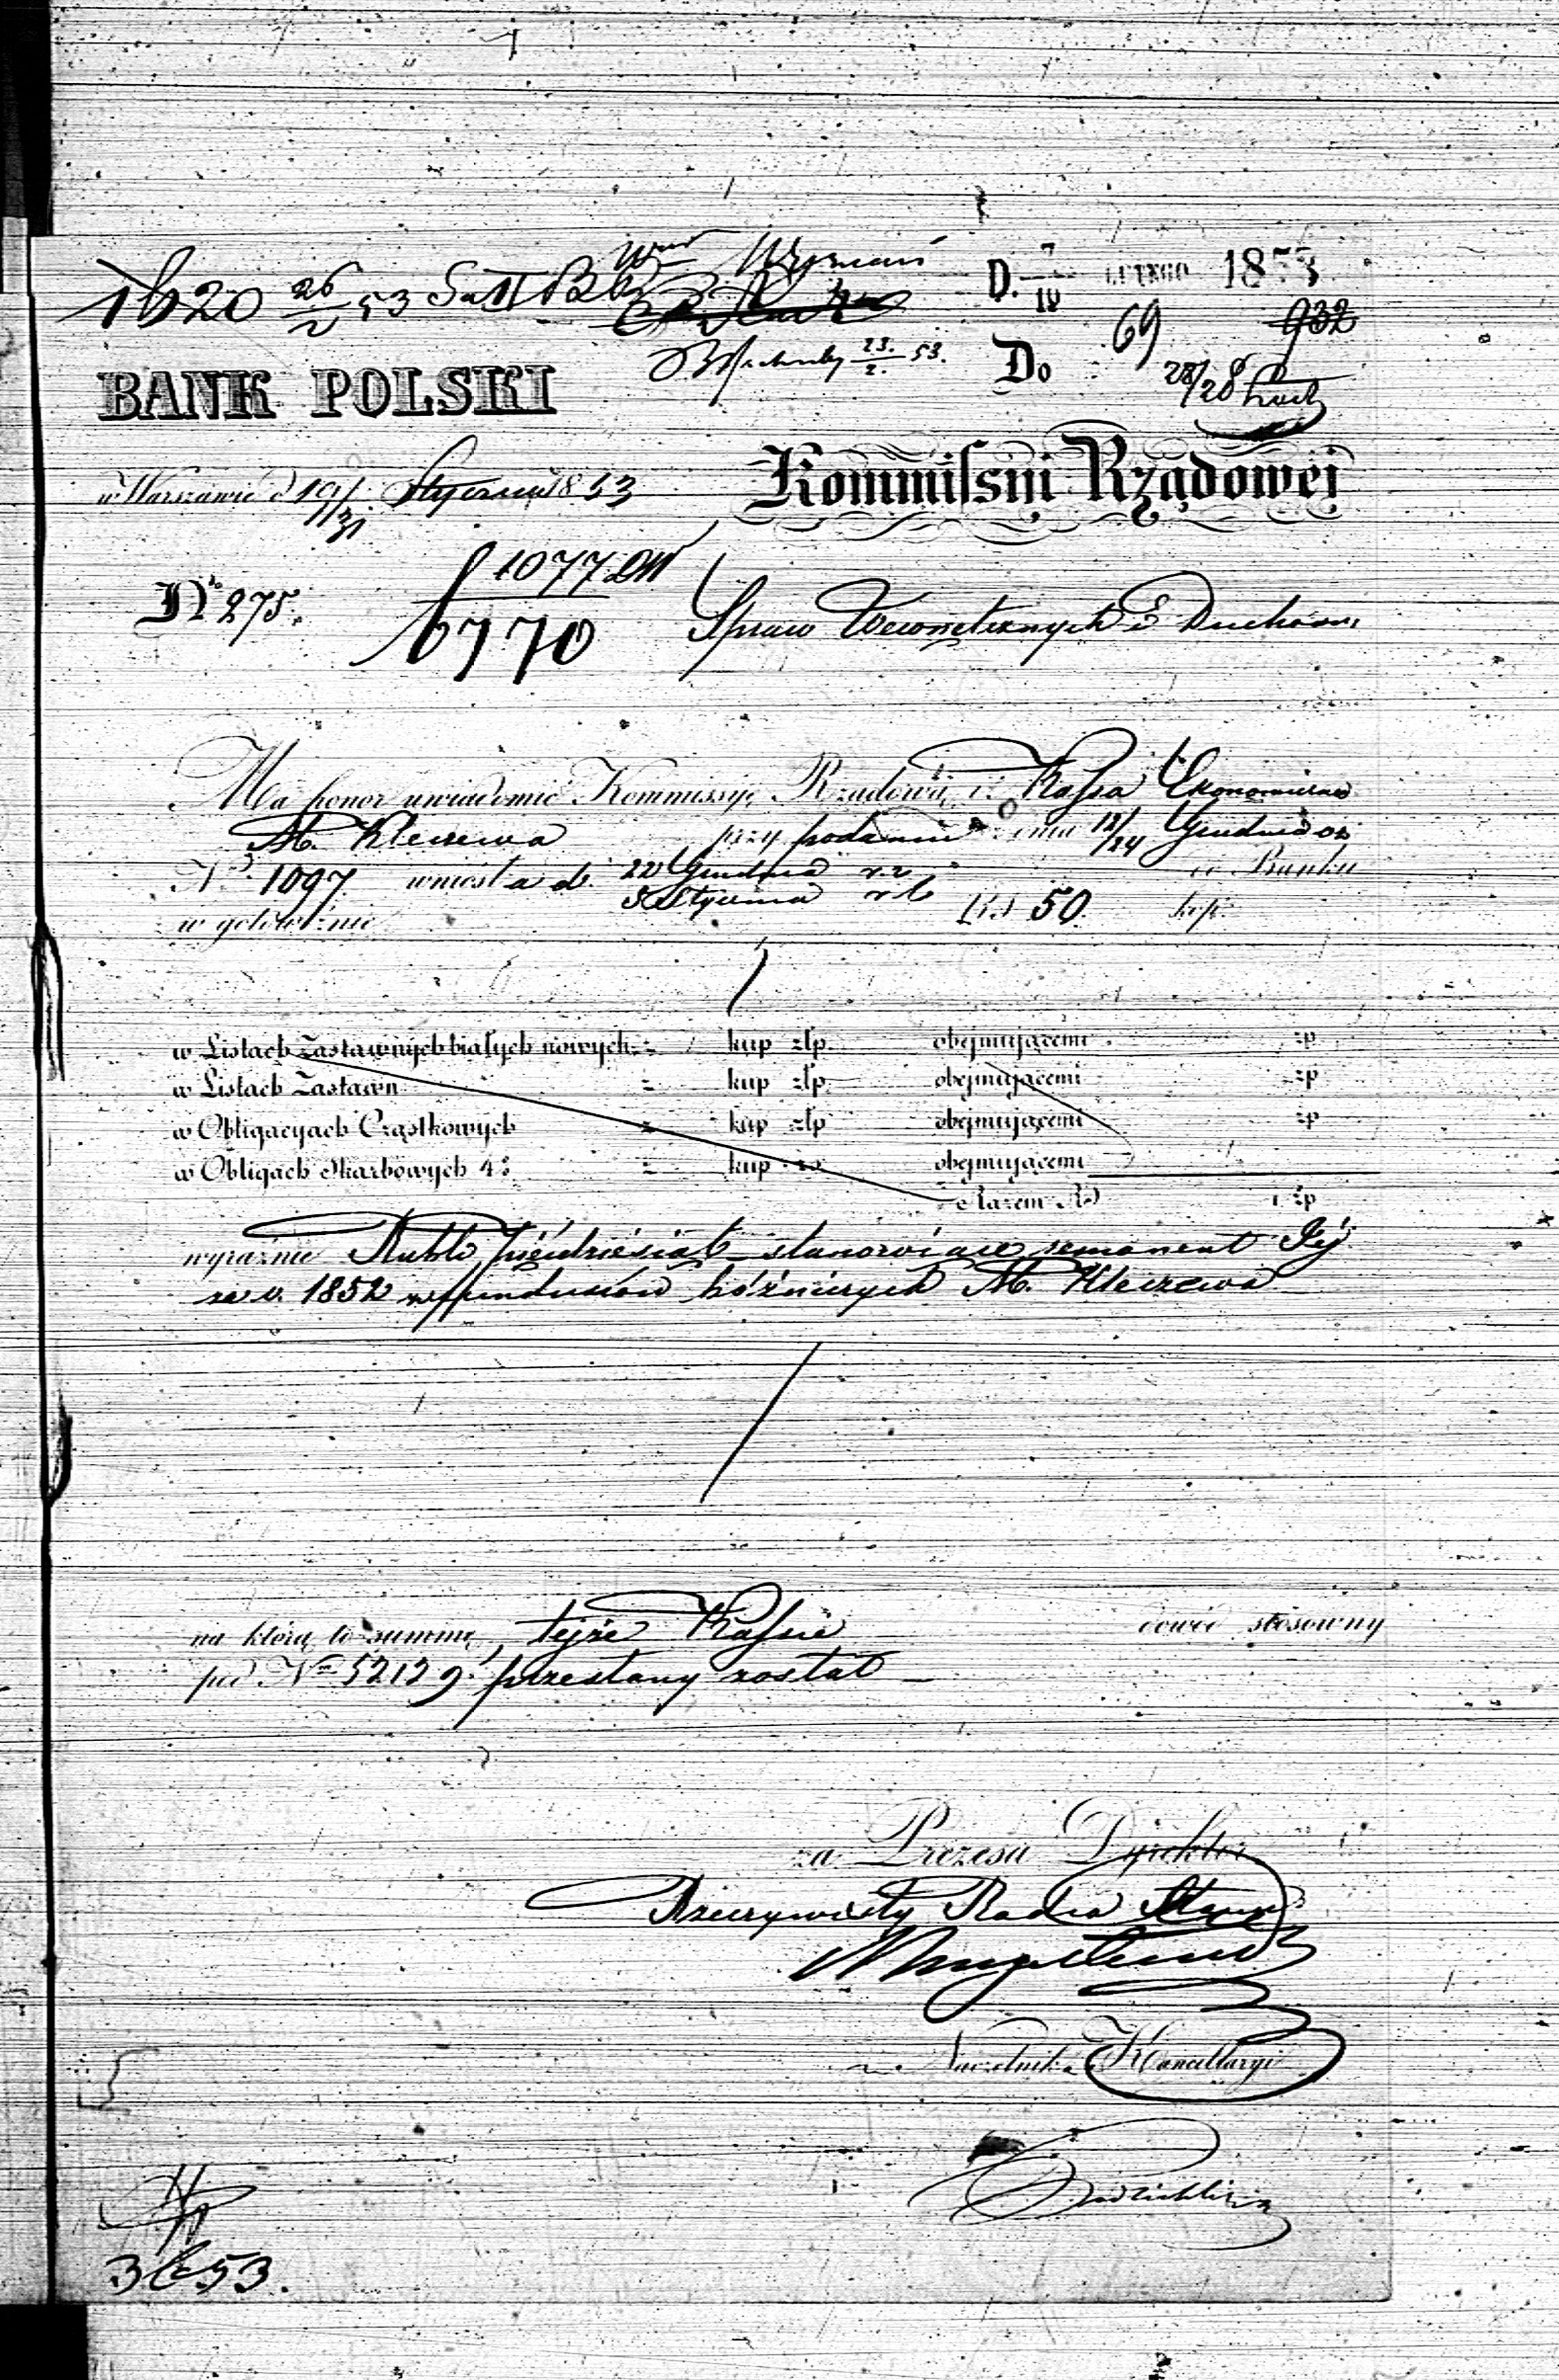 1620 26/2 53
D. 7/19 LUTEGO 1853
69 932
23/2 53.
Do
28/28
BANK POLSKI
w Warszawie d 19/31 Stycznia 1853
Kommissyi Rządowej
1077
6770
No 275.
Spraw Wewnętrznych i Duchown
Ma honor uwiadomić Kommissyję Rządową, iż Kassa Ekonomiczna
M. Kleczewa przy podaniu z dnia 12/24 Grudnia
No 1097 wniosła d. 22 Grudnia r.z do Banku
3 Stycznia r b
w gotowiźnie RS 50. kop.
w Listach Zastawnych białych nowych kup złp. obejmującemi zp
w Listach Zastawn kup złp. obejmującemi zp
w Obligacyach Cząstkowych kup złp obejmującemi zp
w Obligach Skarbowych 4% kup obejmującemi
Razem RS zp
wyraźnie Rubli pięćdziesiąt stanowiące remanent Jéj
za r. 1852 z funduszów bóźniczych M. Kleczewa
na którą to summę, tejże Kassie dowód stósowny
pod No 52129 przesłany został
za Prezesa Dyrektor
Rzeczywisty Radca Stanu
Naczelnik Kancellaryi
53.